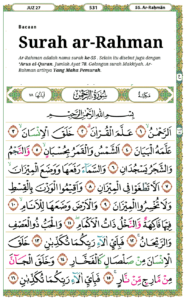 JUZ 27 531 55. Ar-Rahmân
Bacaan
Surah ar-Rahman
Ar-Rahman adalah nama surah ke-55 . Selain itu disebut juga dengan
'Arus al-Quran. Jumlah Ayat 78. Golongan surah Makkiyah. Ar-
Rahman artinya Yang Maha Pemurah.
مكية سورة الرحمن
بِسْمِ اللَّهِ الرَّحْمَٰنِ الرَّحِيمِ
الرَّحْمَٰنُ ١ عَلَّمَ الْقُرْآنَ ٢ خَلَقَ الْإِنسَانَ ٣
عَلَّمَهُ الْبَيَانَ ٤ الشَّمْسُ وَالْقَمَرُ بِحُسْبَانٍ ٥ وَالنَّجْمُ
وَالشَّجَرُ يَسْجُدَانِ ٦ وَالسَّمَاءَ رَفَعَهَا وَوَضَعَ الْمِيزَانَ ٧
أَلَّا تَطْغَوْا فِي الْمِيزَانِ ٨ وَأَقِيمُوا الْوَزْنَ بِالْقِسْطِ
وَلَا تُخْسِرُوا الْمِيزَانَ ٩ وَالْأَرْضَ وَضَعَهَا لِلْأَنَامِ ١٠
فِيهَا فَاكِهَةٌ وَالنَّخْلُ ذَاتُ الْأَكْمَامِ ١١ وَالْحَبُّ ذُو الْعَصْفِ
وَالرَّيْحَانُ ١٢ فَبِأَيِّ آلَاءِ رَبِّكُمَا تُكَذِّبَانِ ١٣ خَلَقَ
الْإِنسَانَ مِن صَلْصَالٍ كَالْفَخَّارِ ١٤ وَخَلَقَ الْجَانَّ
مِن مَّارِجٍ مِّن نَّارٍ ١٥ فَبِأَيِّ آلَاءِ رَبِّكُمَا تُكَذِّبَانِ ١٦